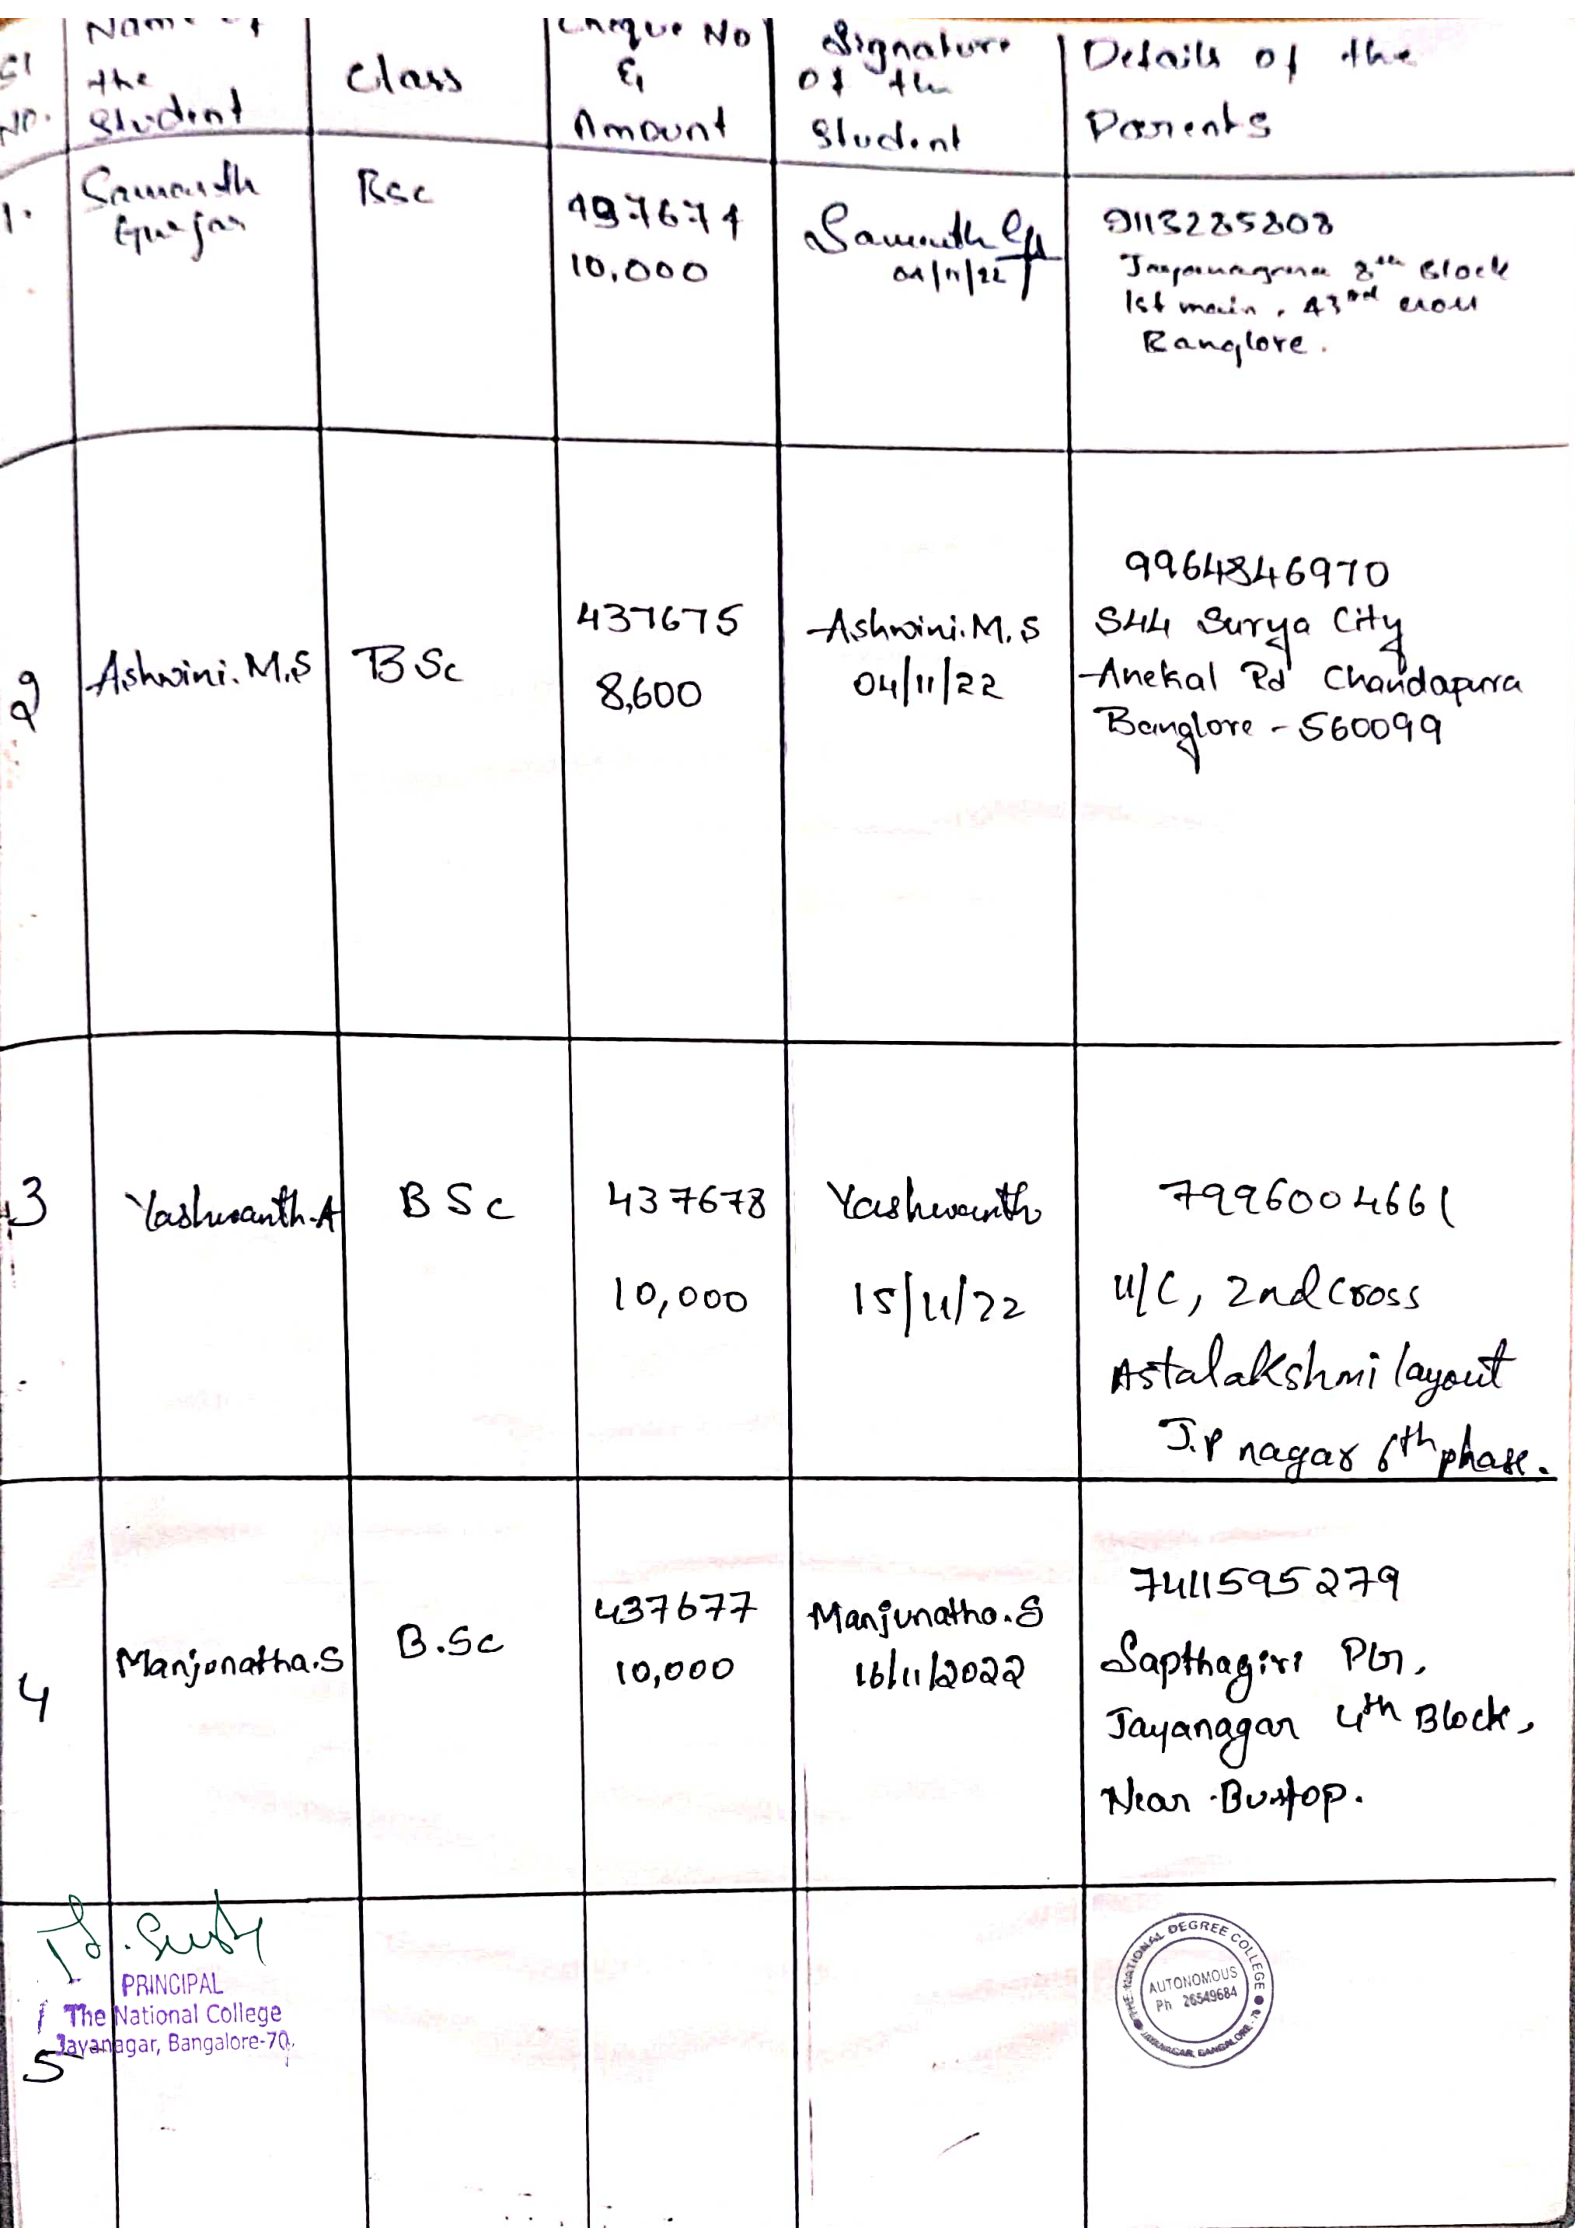 Sl No.
Name of the Student
Class
Cheque No & Amount
Signature Of the Student
Details of the Parents
1.
Samarth
Gurjar
Bsc
497674
10,000
Samarth
04/11/22
9113285808
Jayanagara 8th Block
1st main, 43rd cross
Banglore.
2
Ashwini.M.S
BSc
437675
8,600
Ashwini.M.S
04/11/22
9964846970
S44 Surya City
Anekal Rd Chandapura
Banglore - 560099
3
Yashwanth.A
BSc
437678
10,000
Yashwanth
15/11/22
7996004661
U/C, 2nd Cross
Astalakshmi layout
J.P nagar 6th phase.
4
Manjunatha.S
B.Sc
437677
10,000
Manjunatha.S
16/11/2022
7411595279
Sapthagiri PG,
Jayanagar 4th Block,
Near Bustop.
PRINCIPAL
The National College
Jayanagar, Bangalore-70.
5
THE NATIONAL DEGREE COLLEGE
AUTONOMOUS
Ph 26549684
JAYANAGAR, BANGALORE-70